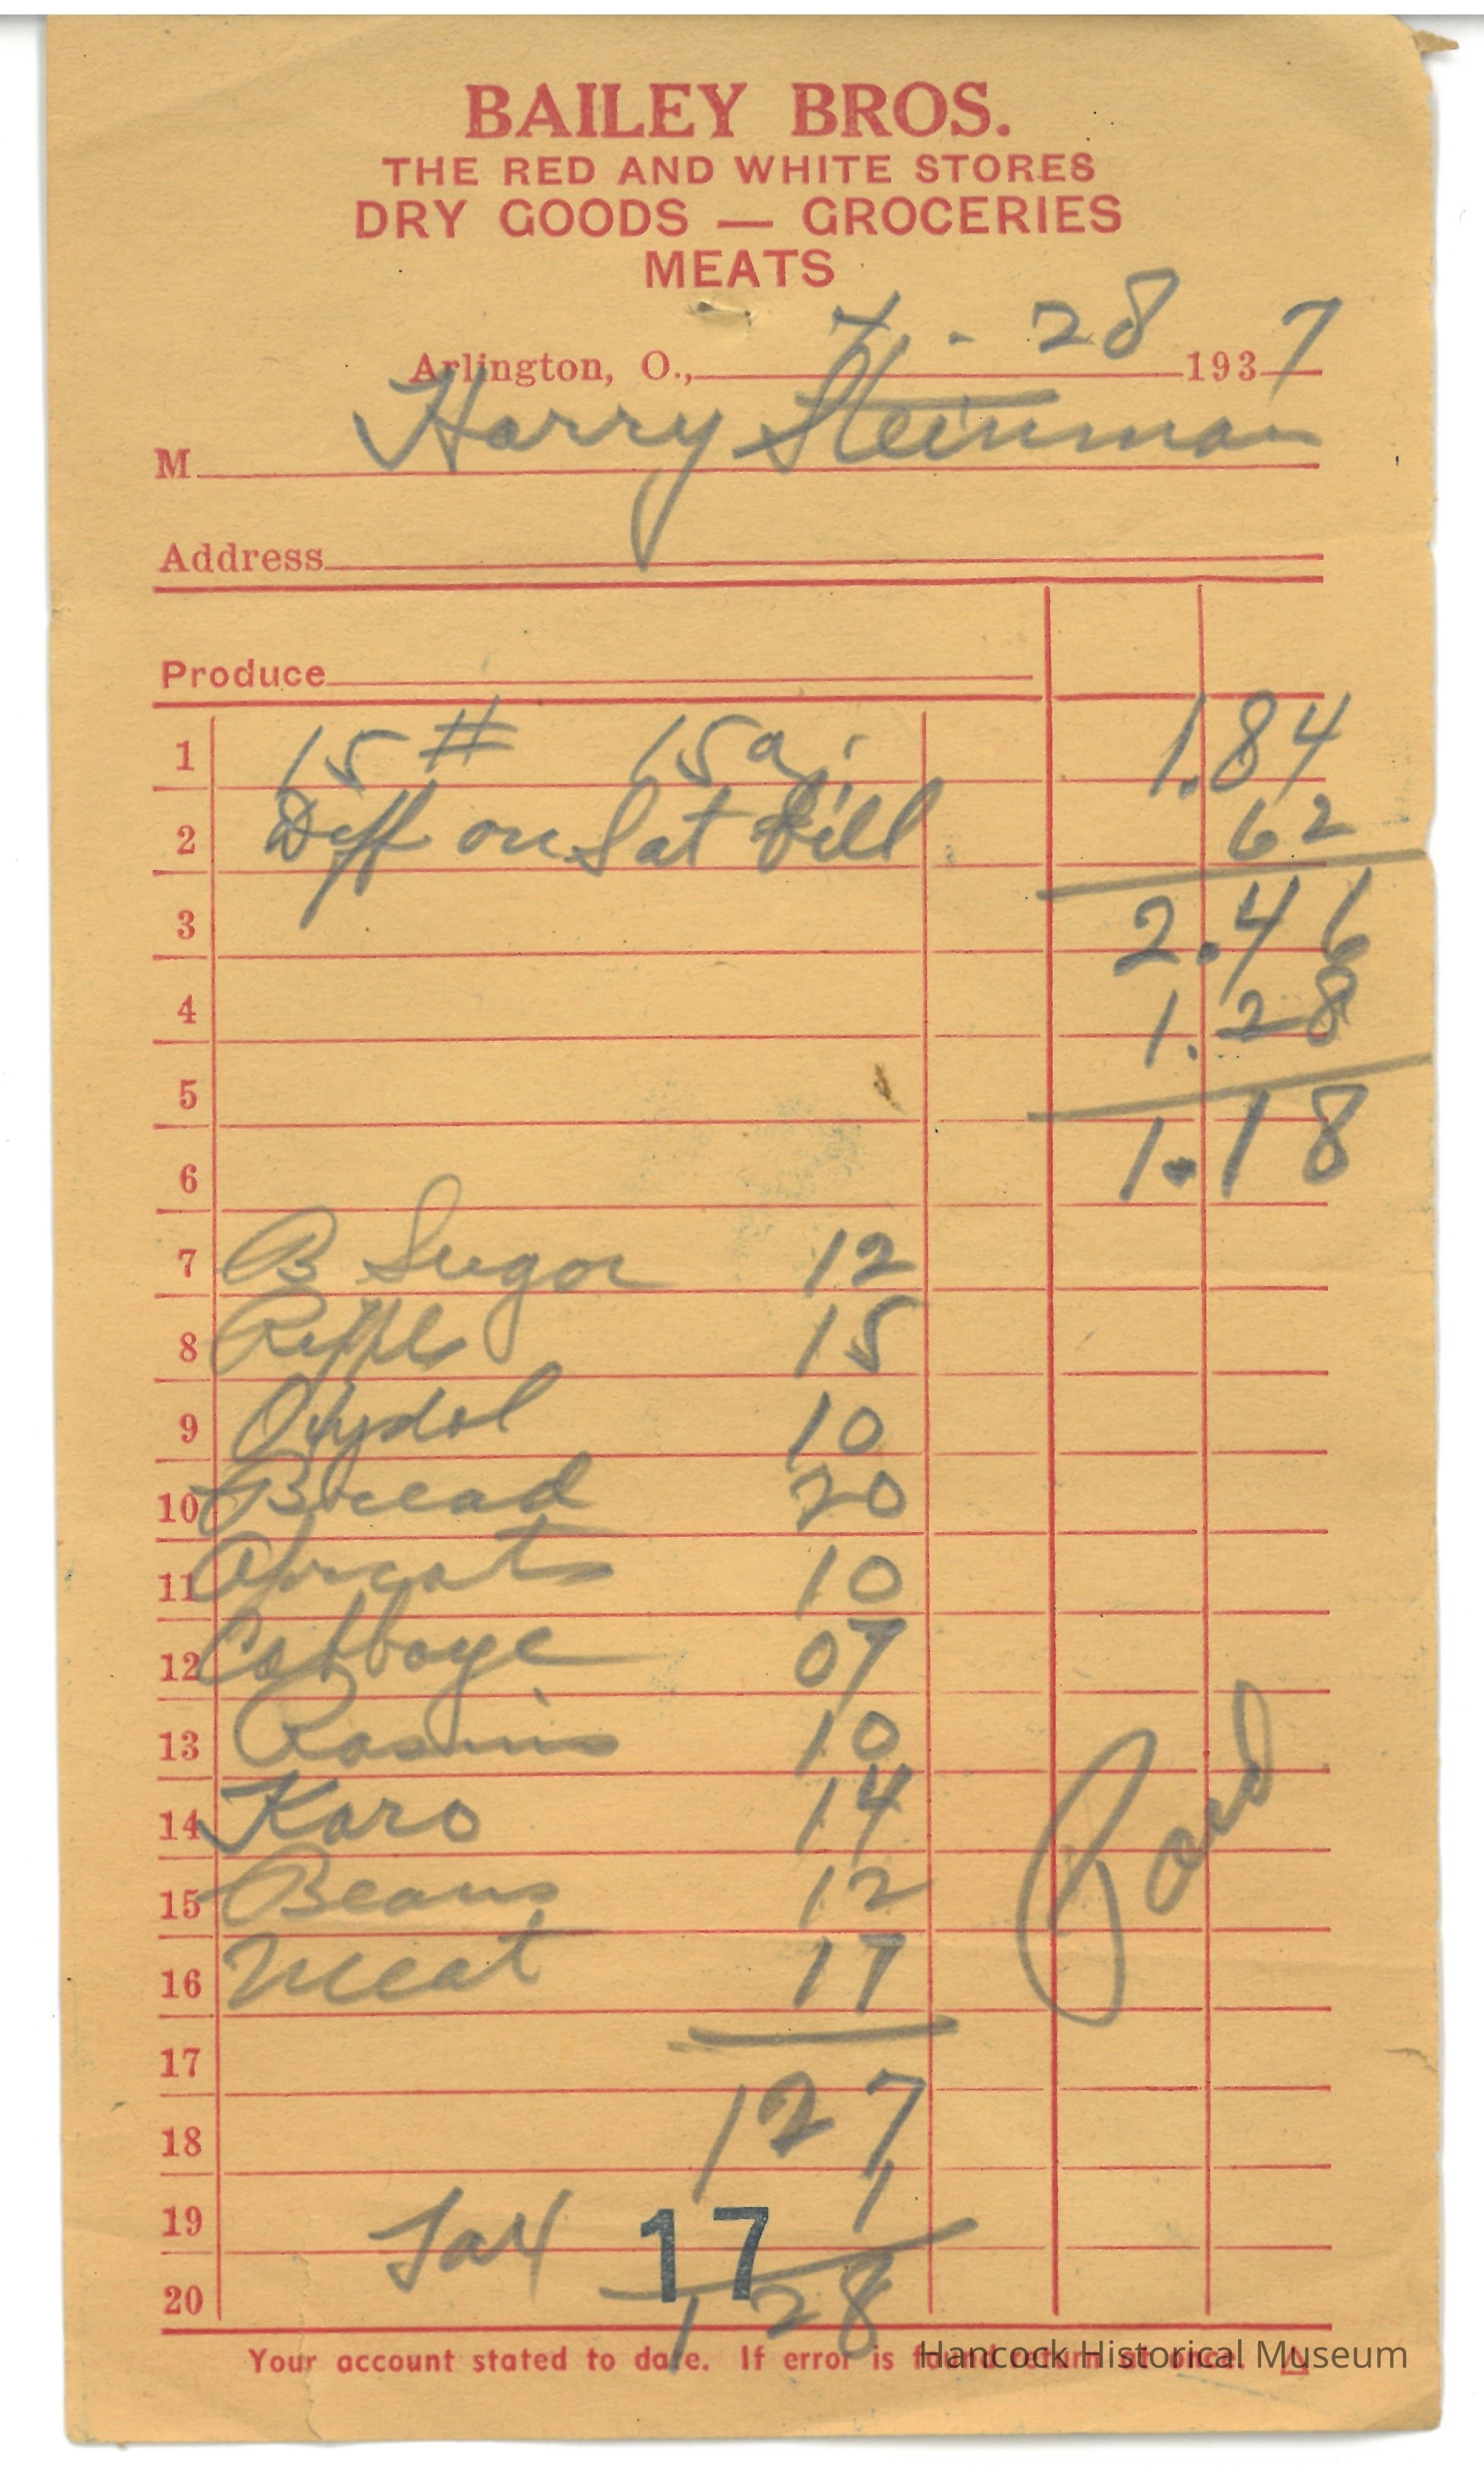 BAILEY BROS.
THE RED AND WHITE STORES
DRY GOODS — GROCERIES
MEATS
Arlington, O., 7 - 28 1937
M Harry Steinman
Address
Produce
1 15 # 15 1.84
2 Diff on Sat Bill 62
3 2.46
4 1.28
5
6 1.18
7 B Sugar 12
8 15
9 Oxydol 10
10 Bread 20
11 Aprcots 10
12 Cabbage 07
13 Rasins 10
14 Karo 14
15 Beans 12
16 Meat 17
17
18 127
19 Tax 1
17
20 128
Paid
Your account stated to date. If error is found return at once.
Hancock Historical Museum